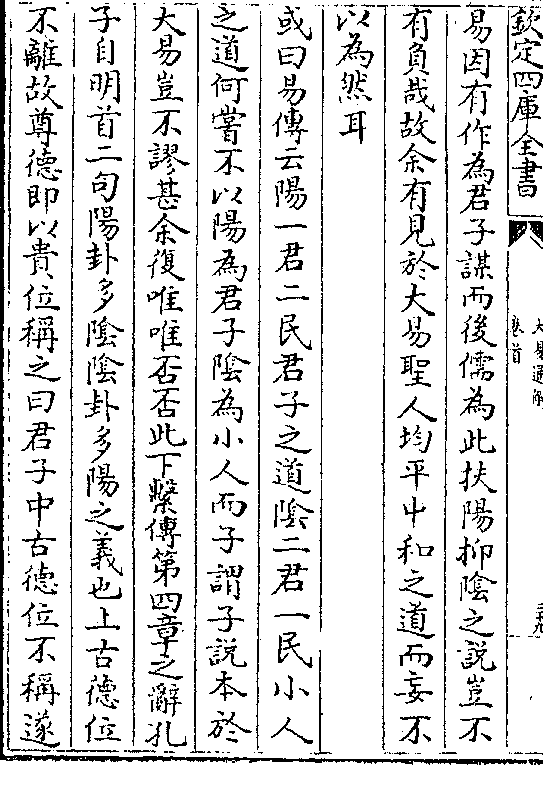 欽定四庫全書
大易通解
卷首
易因有作為君子謀而後儒為此扶陽抑陰之說豈不
有負哉故余有見於大易聖人均平中和之道而妄不
以為然耳
或曰易傳云陽一君二民君子之道陰二君一民小人
之道何嘗不以陽為君子陰為小人而子謂子說本於
大易豈不謬甚余復唯唯否否此下繫傳第四章之辭孔
子自明首二句陽卦多陰陰卦多陽之義也上古德位
不離故尊德即以貴位稱之曰君子中古德位不稱遂